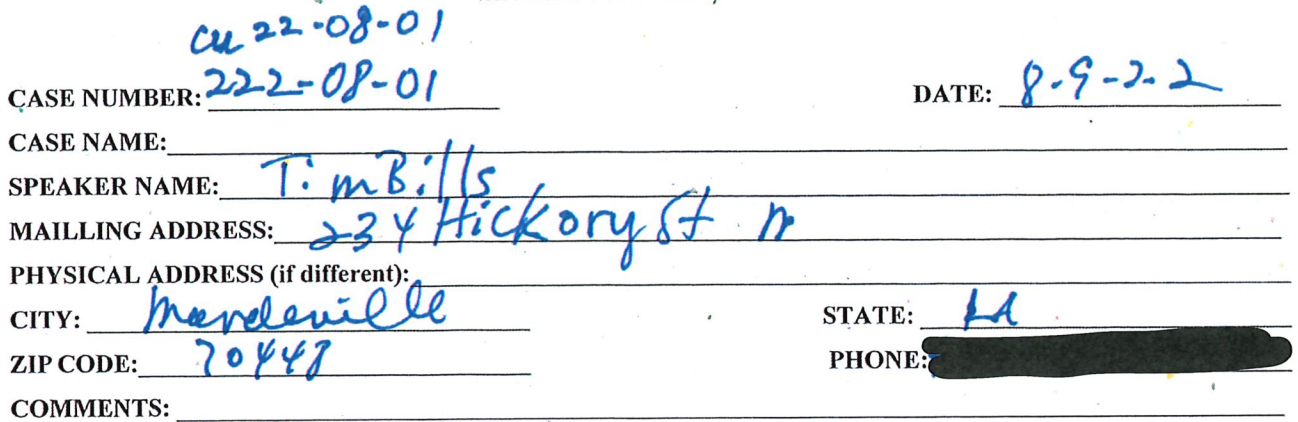 cu 22-08-01
CASE NUMBER: 222-08-01 DATE: 8-9-22
CASE NAME:
SPEAKER NAME: Tim Bills
MAILLING ADDRESS: 234 Hickory St
PHYSICAL ADDRESS (if different):
CITY: Mandeville STATE: LA
ZIP CODE: 70448 PHONE:
COMMENTS: